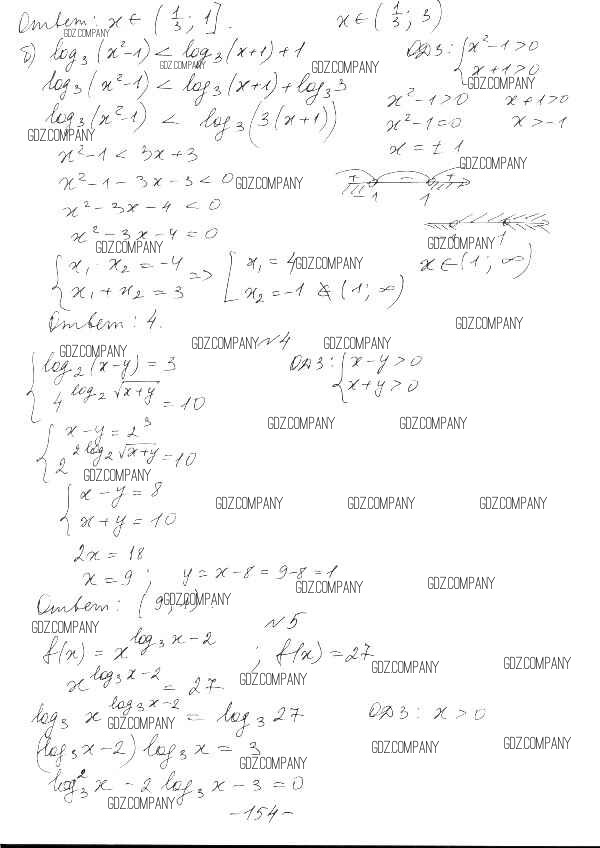 Ответ: x ∈ (1/3; 1]. x ∈ (1/3; 3)
GDZ.COMPANY
б) log₃(x²-1) < log₃(x+1)+1 ОДЗ: { x²-1>0
GDZ.COMPANY GDZ.COMPANY x+1>0
log₃(x²-1) < log₃(x+1)+log₃3 GDZ.COMPANY
x²-1>0 x+1>0
log₃(x²-1) < log₃(3(x+1)) x²-1=0 x>-1
GDZ.COMPANY
x²-1 < 3x+3 x = ±1
GDZ.COMPANY
x²-1-3x-3<0 GDZ.COMPANY + - +
-1 1
x²-3x-4<0
x²-3x-4=0
GDZ.COMPANY GDZ.COMPANY 1
{ x₁ x₂ = -4 => [ x₁ = 4 GDZ.COMPANY x ∈ (1; ∞)
x₁+x₂ = 3 x₂ = -1 ∉ (1; ∞)
Ответ: 4. GDZ.COMPANY
GDZ.COMPANY N4 GDZ.COMPANY
GDZ.COMPANY
{ log₂(x-y) = 3 ОДЗ: { x-y>0
4^(log₂√(x+y)) = 10 x+y>0
GDZ.COMPANY GDZ.COMPANY
{ x-y = 2³
2^(2log₂√(x+y)) = 10
GDZ.COMPANY
{ x-y = 8 GDZ.COMPANY GDZ.COMPANY GDZ.COMPANY
x+y = 10
2x = 18
x = 9; y = x-8 = 9-8 = 1
GDZ.COMPANY GDZ.COMPANY
Ответ: (9; GDZ.COMPANY
GDZ.COMPANY N5
f(x) = x^(log₃x-2); f(x) = 27
GDZ.COMPANY GDZ.COMPANY
x^(log₃x-2) = 27 GDZ.COMPANY
log₃ x^(log₃x-2) = log₃27 ОДЗ: x>0
GDZ.COMPANY
(log₃x-2) log₃x = 3 GDZ.COMPANY GDZ.COMPANY
GDZ.COMPANY
log₃²x - 2 log₃x - 3 = 0
GDZ.COMPANY
-154-